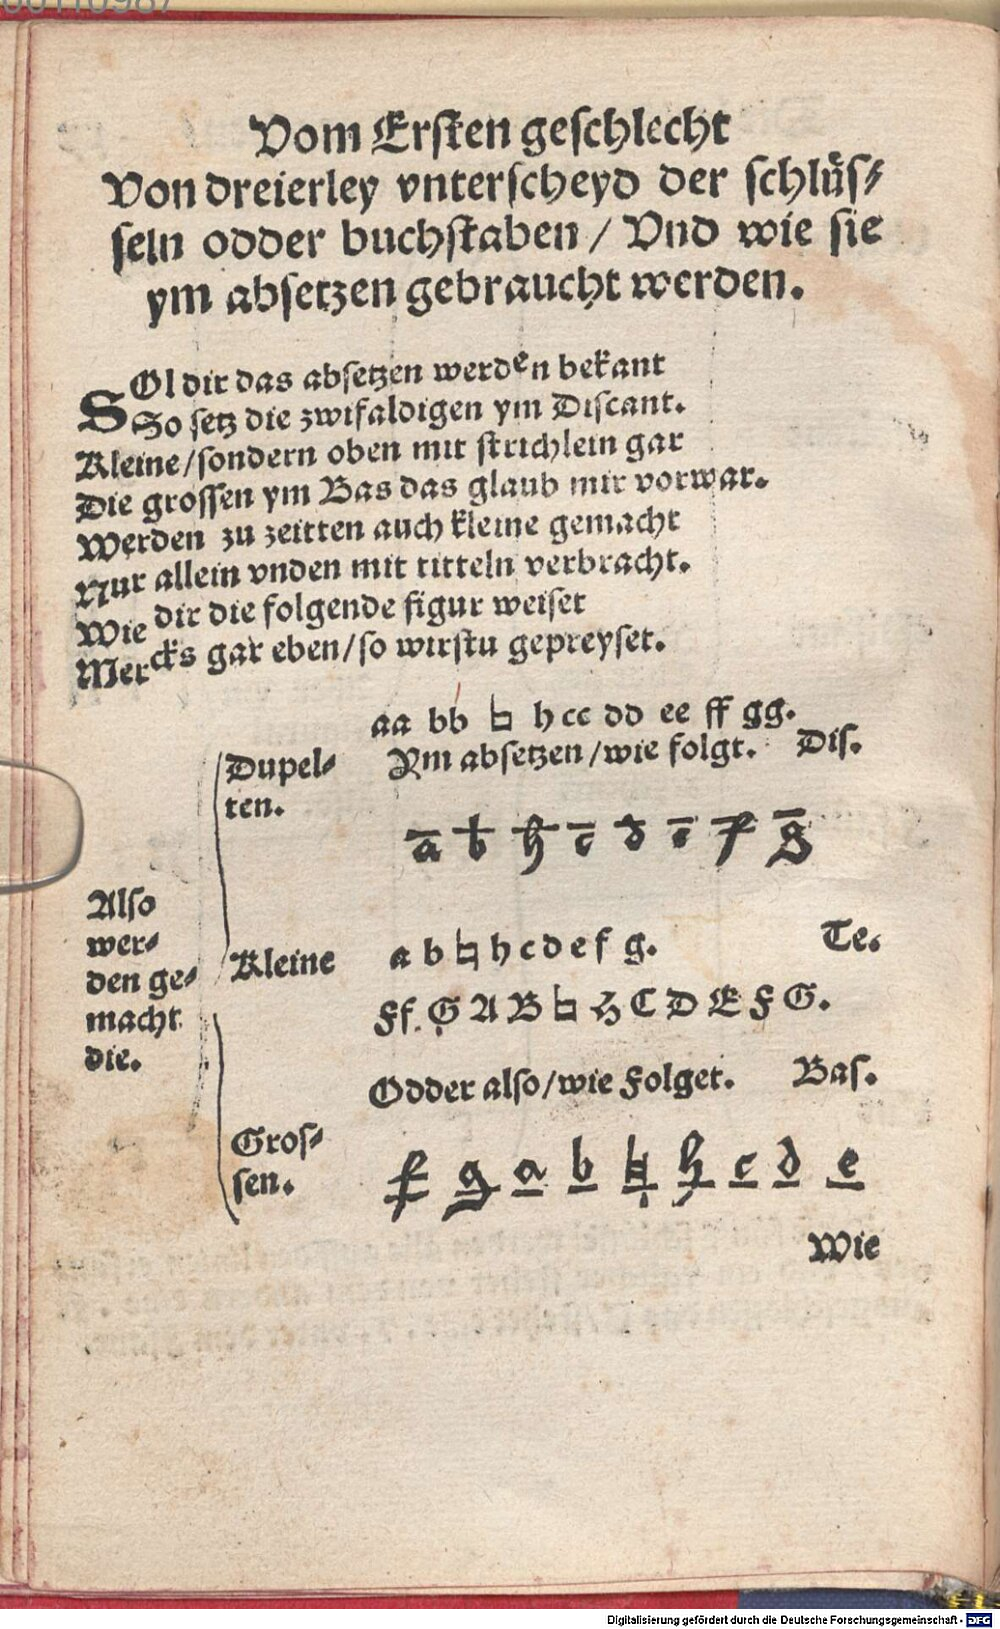 Vom Ersten geschlecht
Von dreierley vnterscheyd der schlüs⸗
seln odder buchstaben / Vnd wie sie
ym absetzen gebraucht werden.
SOl dir das absetzen werden bekant
So setz die zwifaldigen ym Discant.
Kleine / sondern oben mit strichlein gar
Die grossen ym Bas das glaub mir vorwar.
Werden zu zeitten auch kleine gemacht
Nur allein vnden mit titteln verbracht.
Wie dir die folgende figur weiset
Mercks gar eben / so wirstu gepreyset.
aa bb ♮ h cc dd ee ff gg.
Dupel⸗
ten.
Ym absetzen / wie folgt. Dis.
a b h c d e f g
Also
wer⸗
den ge⸗
macht
die.
Kleine
a b ♮ h c d e f g. Te.
Ff. G A B ♮ H C D E F G.
Odder also / wie Folget. Bas.
Gros⸗
sen.
f g a b ♮ h c d e
Wie
Digitalisierung gefördert durch die Deutsche Forschungsgemeinschaft - DFG